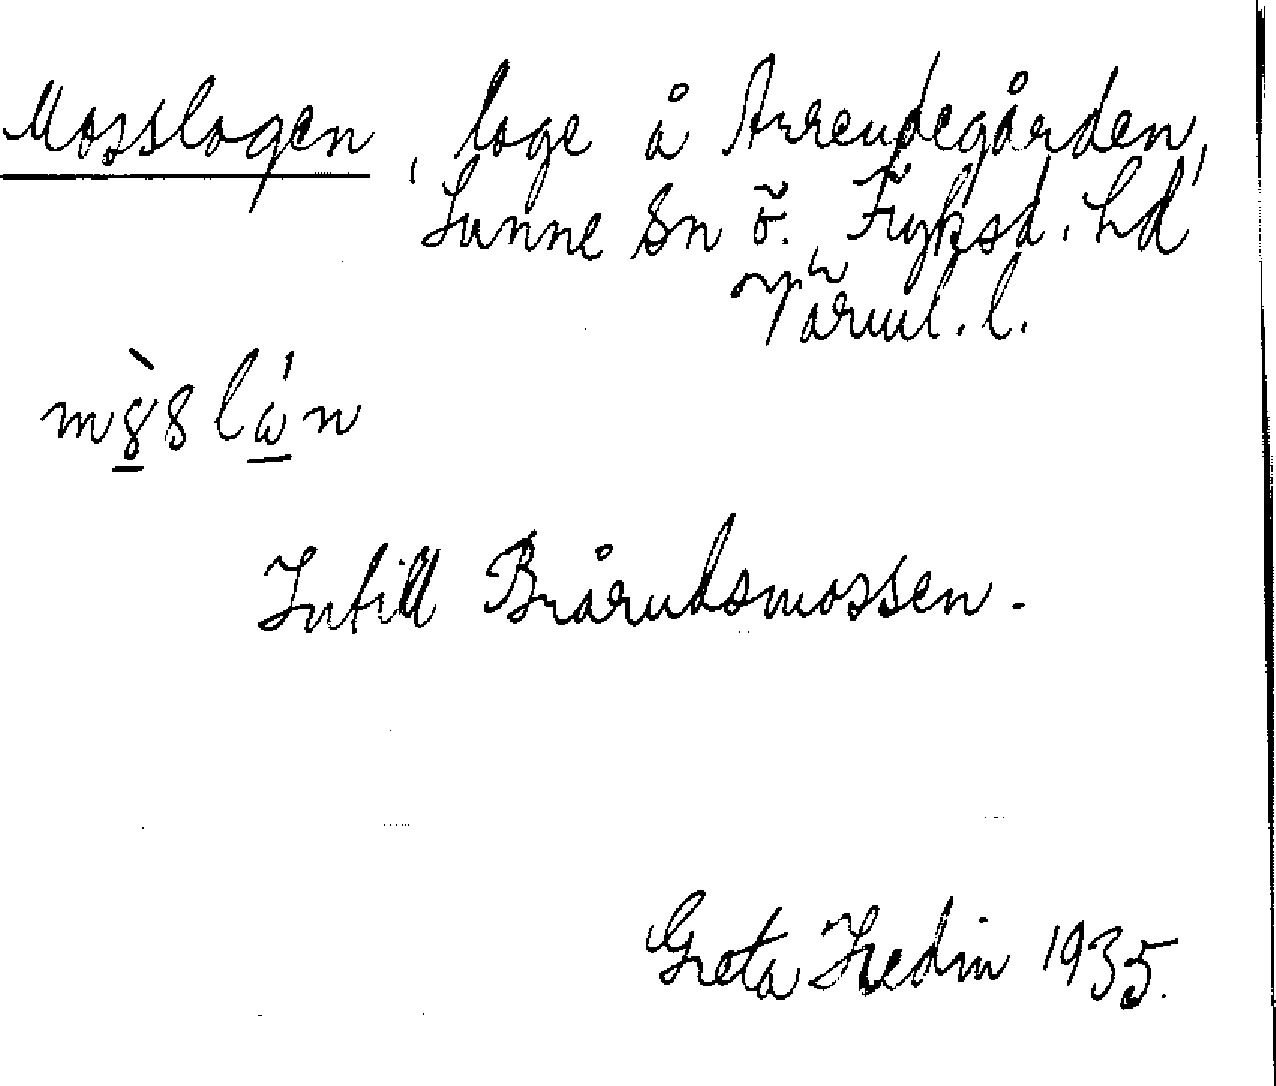 Mosslogen, loge å Arrendegården,
Sunne Sn Ö. Fryksd. hd
Värml. l.
Intill Brårudsmossen.
Greta Hedin 1935.